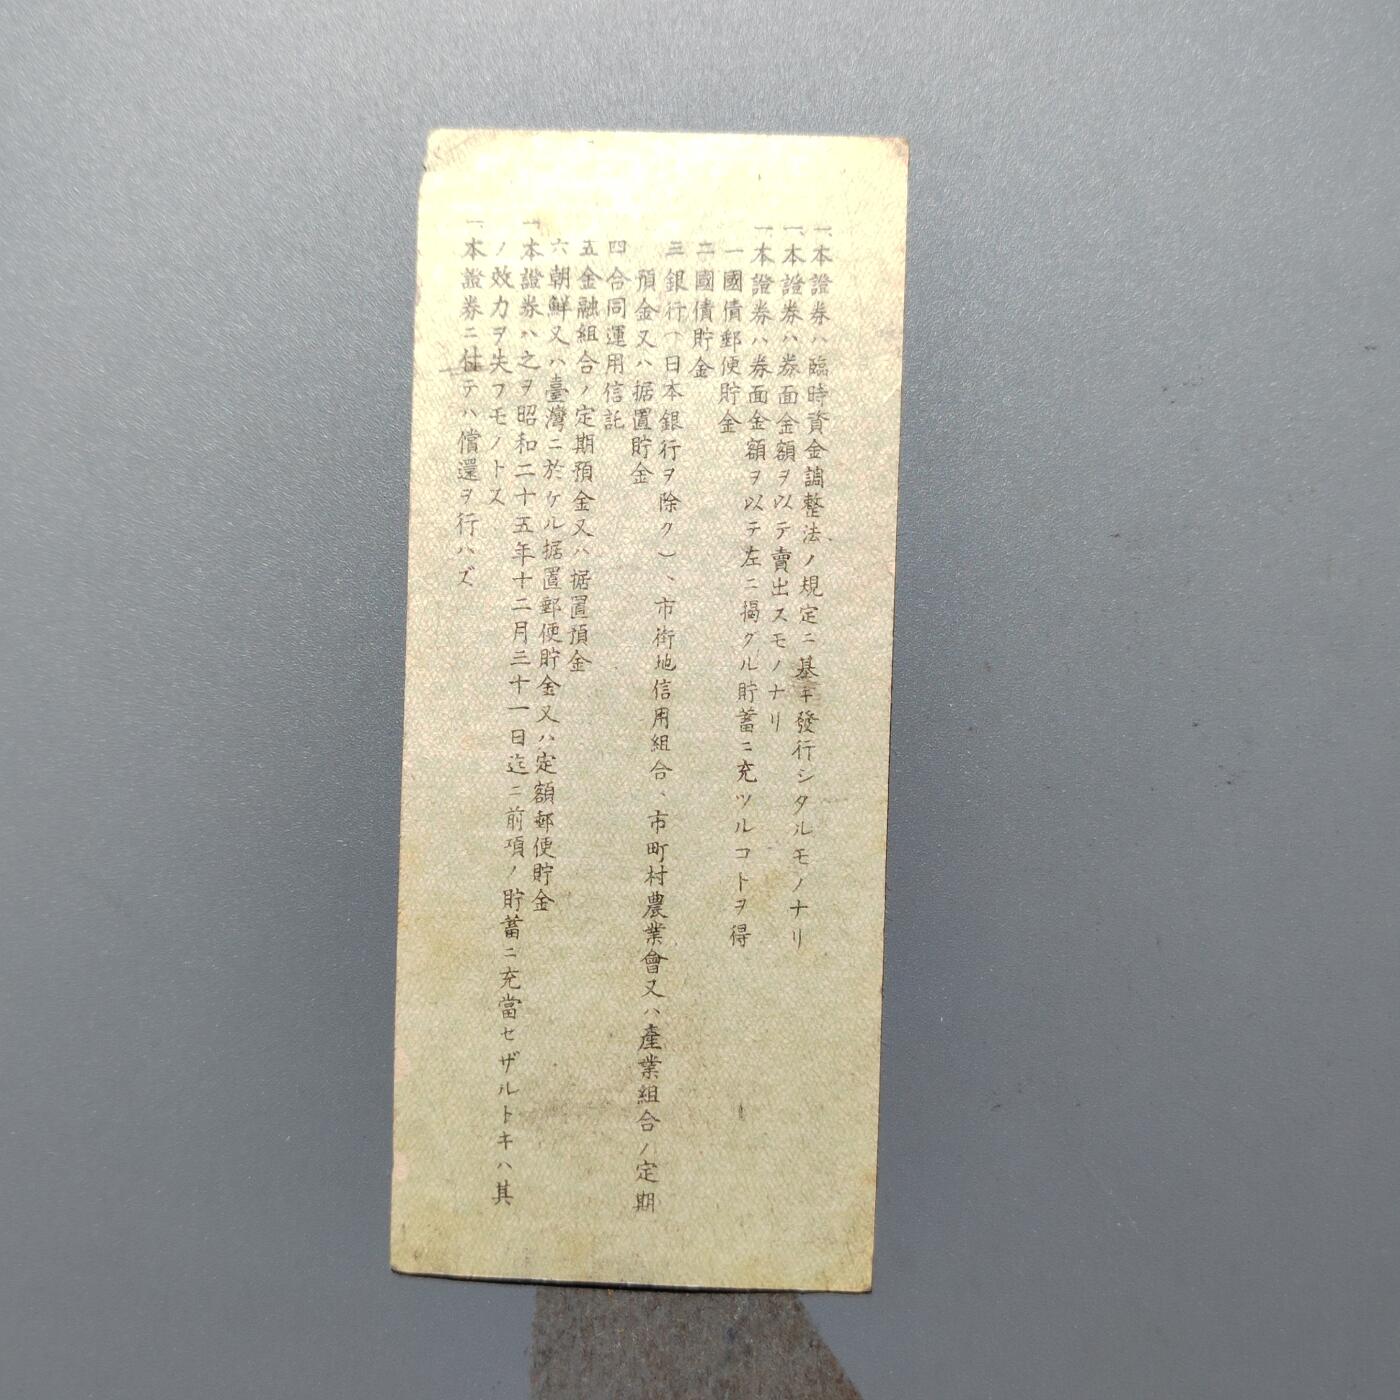 一、本證券ハ臨時資金調整法ノ規定ニ基キ發行シタルモノナリ
一、本證券ハ券面金額ヲ以テ賣出スモノナリ
一、本證券ハ券面金額ヲ以テ左ニ揭グル貯蓄ニ充ツルコトヲ得
一 國債郵便貯金
二 國債貯金
三 銀行(日本銀行ヲ除ク)、市街地信用組合、市町村農業會又ハ產業組合ノ定期
預金又ハ据置貯金
四 合同運用信託
五 金融組合ノ定期預金又ハ据置預金
六 朝鮮又ハ臺灣ニ於ケル据置郵便貯金又ハ定額郵便貯金
一、本證券ハ之ヲ昭和二十五年十二月三十一日迄ニ前項ノ貯蓄ニ充當セザルトキハ其
ノ效力ヲ失フモノトス
一、本證券ニ付テハ償還ヲ行ハズ